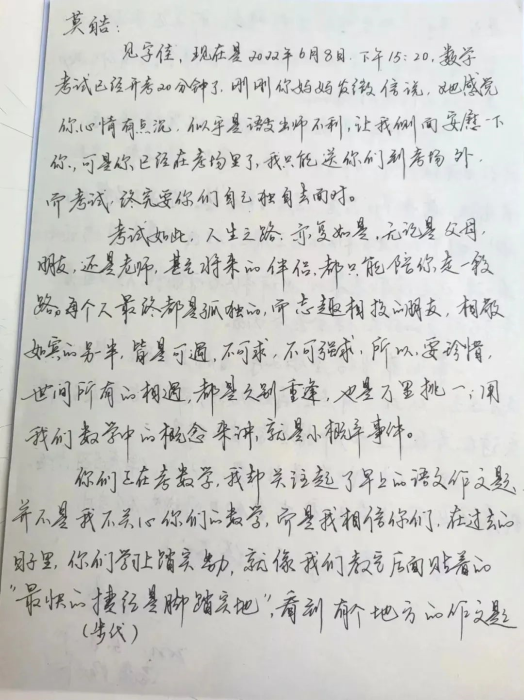 莫皓：
见字佳，现在是2022年6月8日.下午15：20，数学
考试已经开考20分钟了.刚刚你妈妈发微信说，她感觉
你心情有点沉.似乎是语文出师不利，让我侧面安慰一下
你，可是你已经在考场里了，我只能送你们到考场外，
而考试，终究要你们自己独自去面对。
考试如此，人生之路，亦复如是，无论是父母，
朋友，还是老师，甚至将来的伴侣，都只能陪你走一段
路，每个人最终都是孤独的，而志趣相投的朋友，相敬
如宾的另一半，皆是可遇，不可求，不可强求，所以，要珍惜，
世间所有的相遇，都是久别重逢，也是万里挑一；用
我们数学中的概念来讲，就是小概率事件。
你们正在考数学，我却关注起了早上的语文作文题，
并不是我不关心你们的数学，而是我相信你们，在过去的
日子里，你们学习上踏实努力，就像我们教室后面贴着的
“最快的捷径是脚踏实地”，看到有个地方的作文题
（步伐）